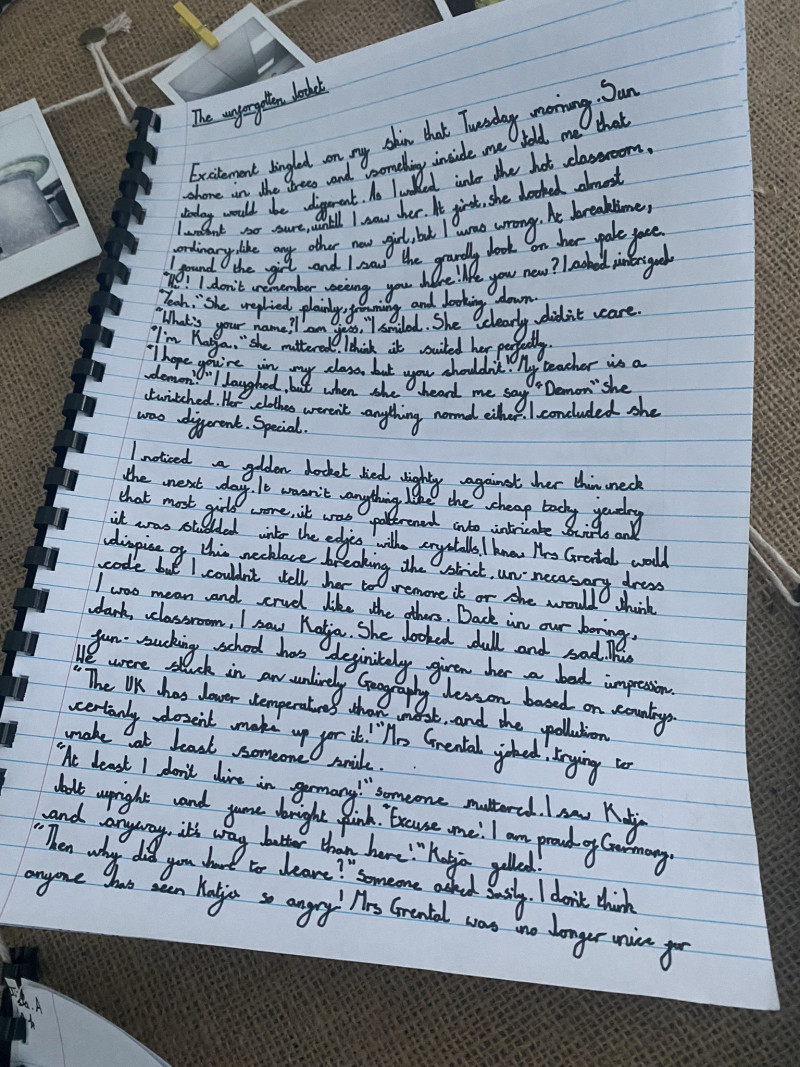 The unforgotten locket
Excitement tingled on my skin that Tuesday morning. Sun
shone in the trees and something inside me told me that
today would be different. As I walked into the hot classroom,
I wasnt so sure, untill I saw her. At first, she looked almost
ordinary, like any other new girl, but I was wrong. At breaktime,
I found the girl and I saw the gravelly look on her pale face.
"Hi! I don't remember seeing you here! Are you new? I asked, intrigued
"Yeah." She replied plainly, frowning and looking down.
"What's your name? I am jess," I smiled. She clearly didn't care.
"I'm Katja," she muttered. I think it suited her perfectly.
"I hope you're in my class, but you shouldn't. My teacher is a
demon!" I laughed, but when she heard me say "Demon" she
twitched. Her clothes weren't anything normal either. I concluded she
was different. Special.
I noticed a golden locket tied tighty against her thin neck
the next day. It wasn't anything like the cheap tacky jewelry
that most girls wore, it was patterened into intricate swirls and
it was studded into the edjes withe crystalls, I knew Mrs Grental would
dispise of this necklace breaking the strict, un-necasary dress
code but I couldn't tell her to remove it or she would think
I was mean and cruel like the others. Back in our boring,
dark, classroom, I saw Katja. She looked dull and sad. This
fun-sucking school has definitely given her a bad impression.
We were stuck in an unlirely Geography lesson based on countrys.
"The UK has lower temperatures than most, and the pollution
certanly dosent make up for it!" Mrs Grental joked, trying to
make at least someone smile.
"At least I don't live in germany!" someone muttered. I saw Katja
bolt upright and fume bright pink. "Excuse me! I am proud of Germany,
and anyway, it's way better than here!" Katja yelled.
"Then why did you have to leave?" someone asked sasily. I don't think
anyone has seen Katja so angry! Mrs Grental was no longer nice for